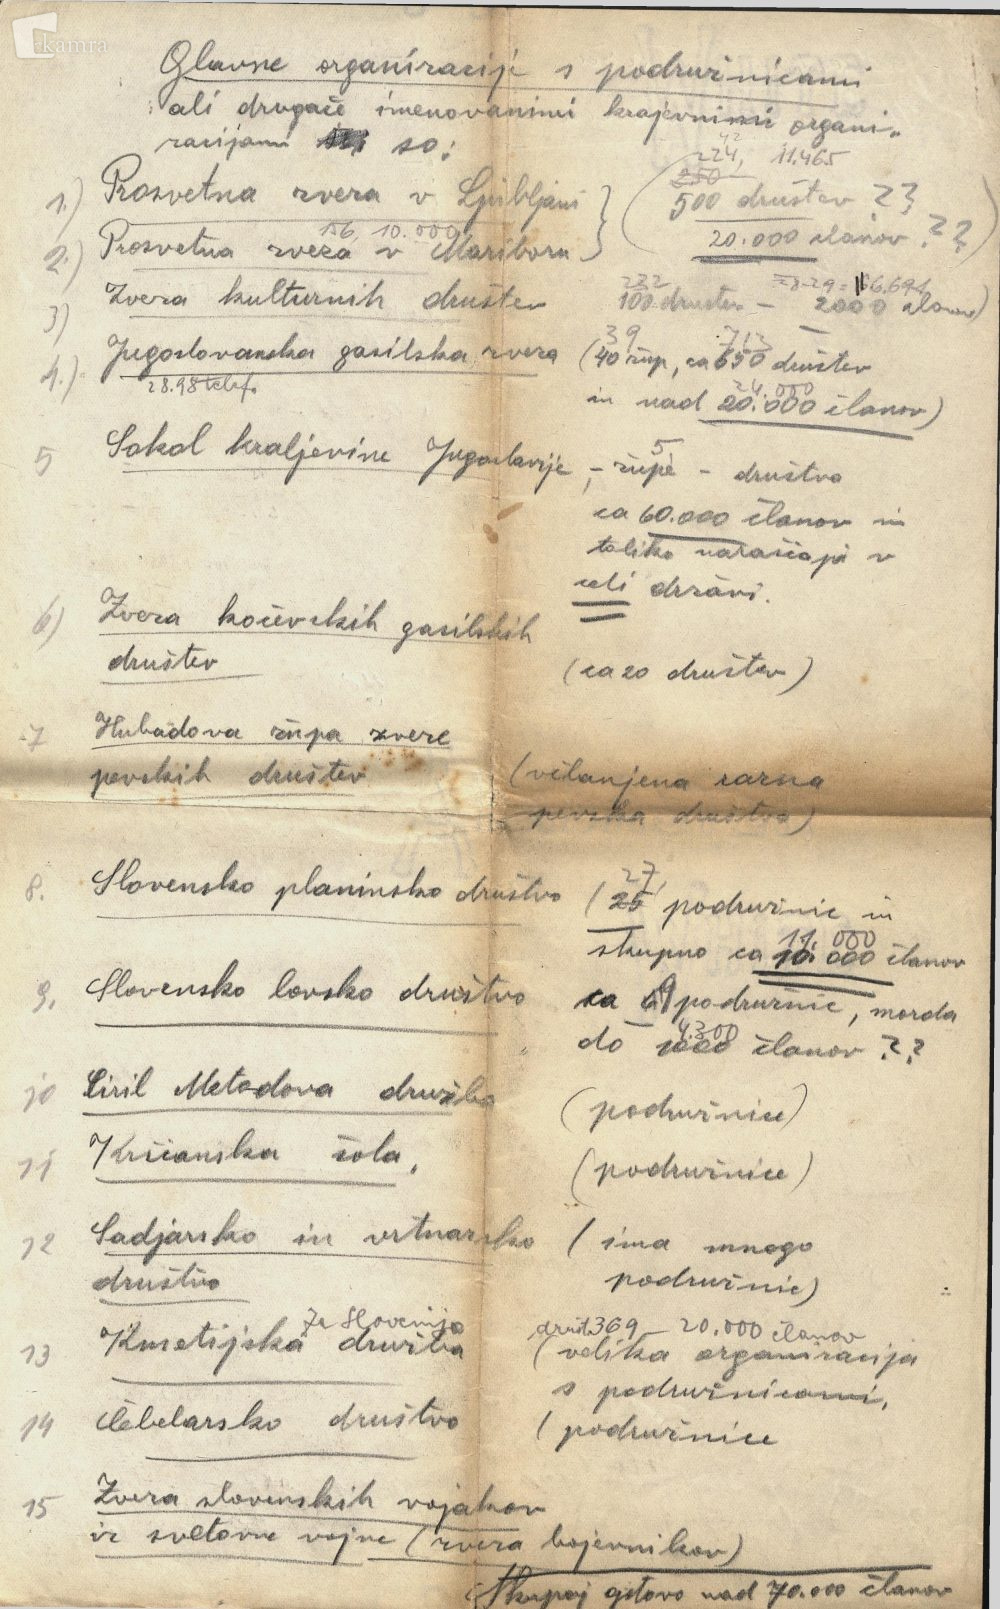 kamra
Glavne organizacije s podružnicami
ali drugače imenovanimi krajevnimi organi-
zacijami so:
42
224, 11.465
250
1.) Prosvetna zveza v Ljubljani
500 društev ??
156, 10.000
2.) Prosvetna zveza v Mariboru
20.000 članov ??
232
3) Zveza kulturnih društev
100 društev – 2000 članov)
39 712
4.) Jugoslovanska gasilska zveza (40 žup, ca 650 društev
28.98 telef.
24.000
in nad 20.000 članov)
5 Sokol kraljevine Jugoslavije, – 5 župe – društva
ca 60.000 članov in
toliko naraščaja v
celi državi.
6) Zveza kočevskih gasilskih
društev (ca 20 društev)
7 Hubadova župa zveze
pevskih društev (včlanjena razna
pevska društva)
27,
8. Slovensko planinsko društvo (25 podružnic in
11 000
skupno ca 10.000 članov
9. Slovensko lovsko društvo ca podružnic, morda
4.300
do 1000 članov ??
10 Ciril Metodova družba (podružnice)
11 Krščanska šola, (podružnice)
12 Sadjarsko in vrtnarsko (ima mnogo
društvo podružnic)
za Slovenijo društ 369 – 20.000 članov
13 Kmetijska družba (velika organizacija
s podružnicami,
14 Čebelarsko društvo (podružnice
15 Zveza slovenskih vojakov
iz svetovne vojne (zveza bojevnikov)
Skupaj gotovo nad 70.000 članov